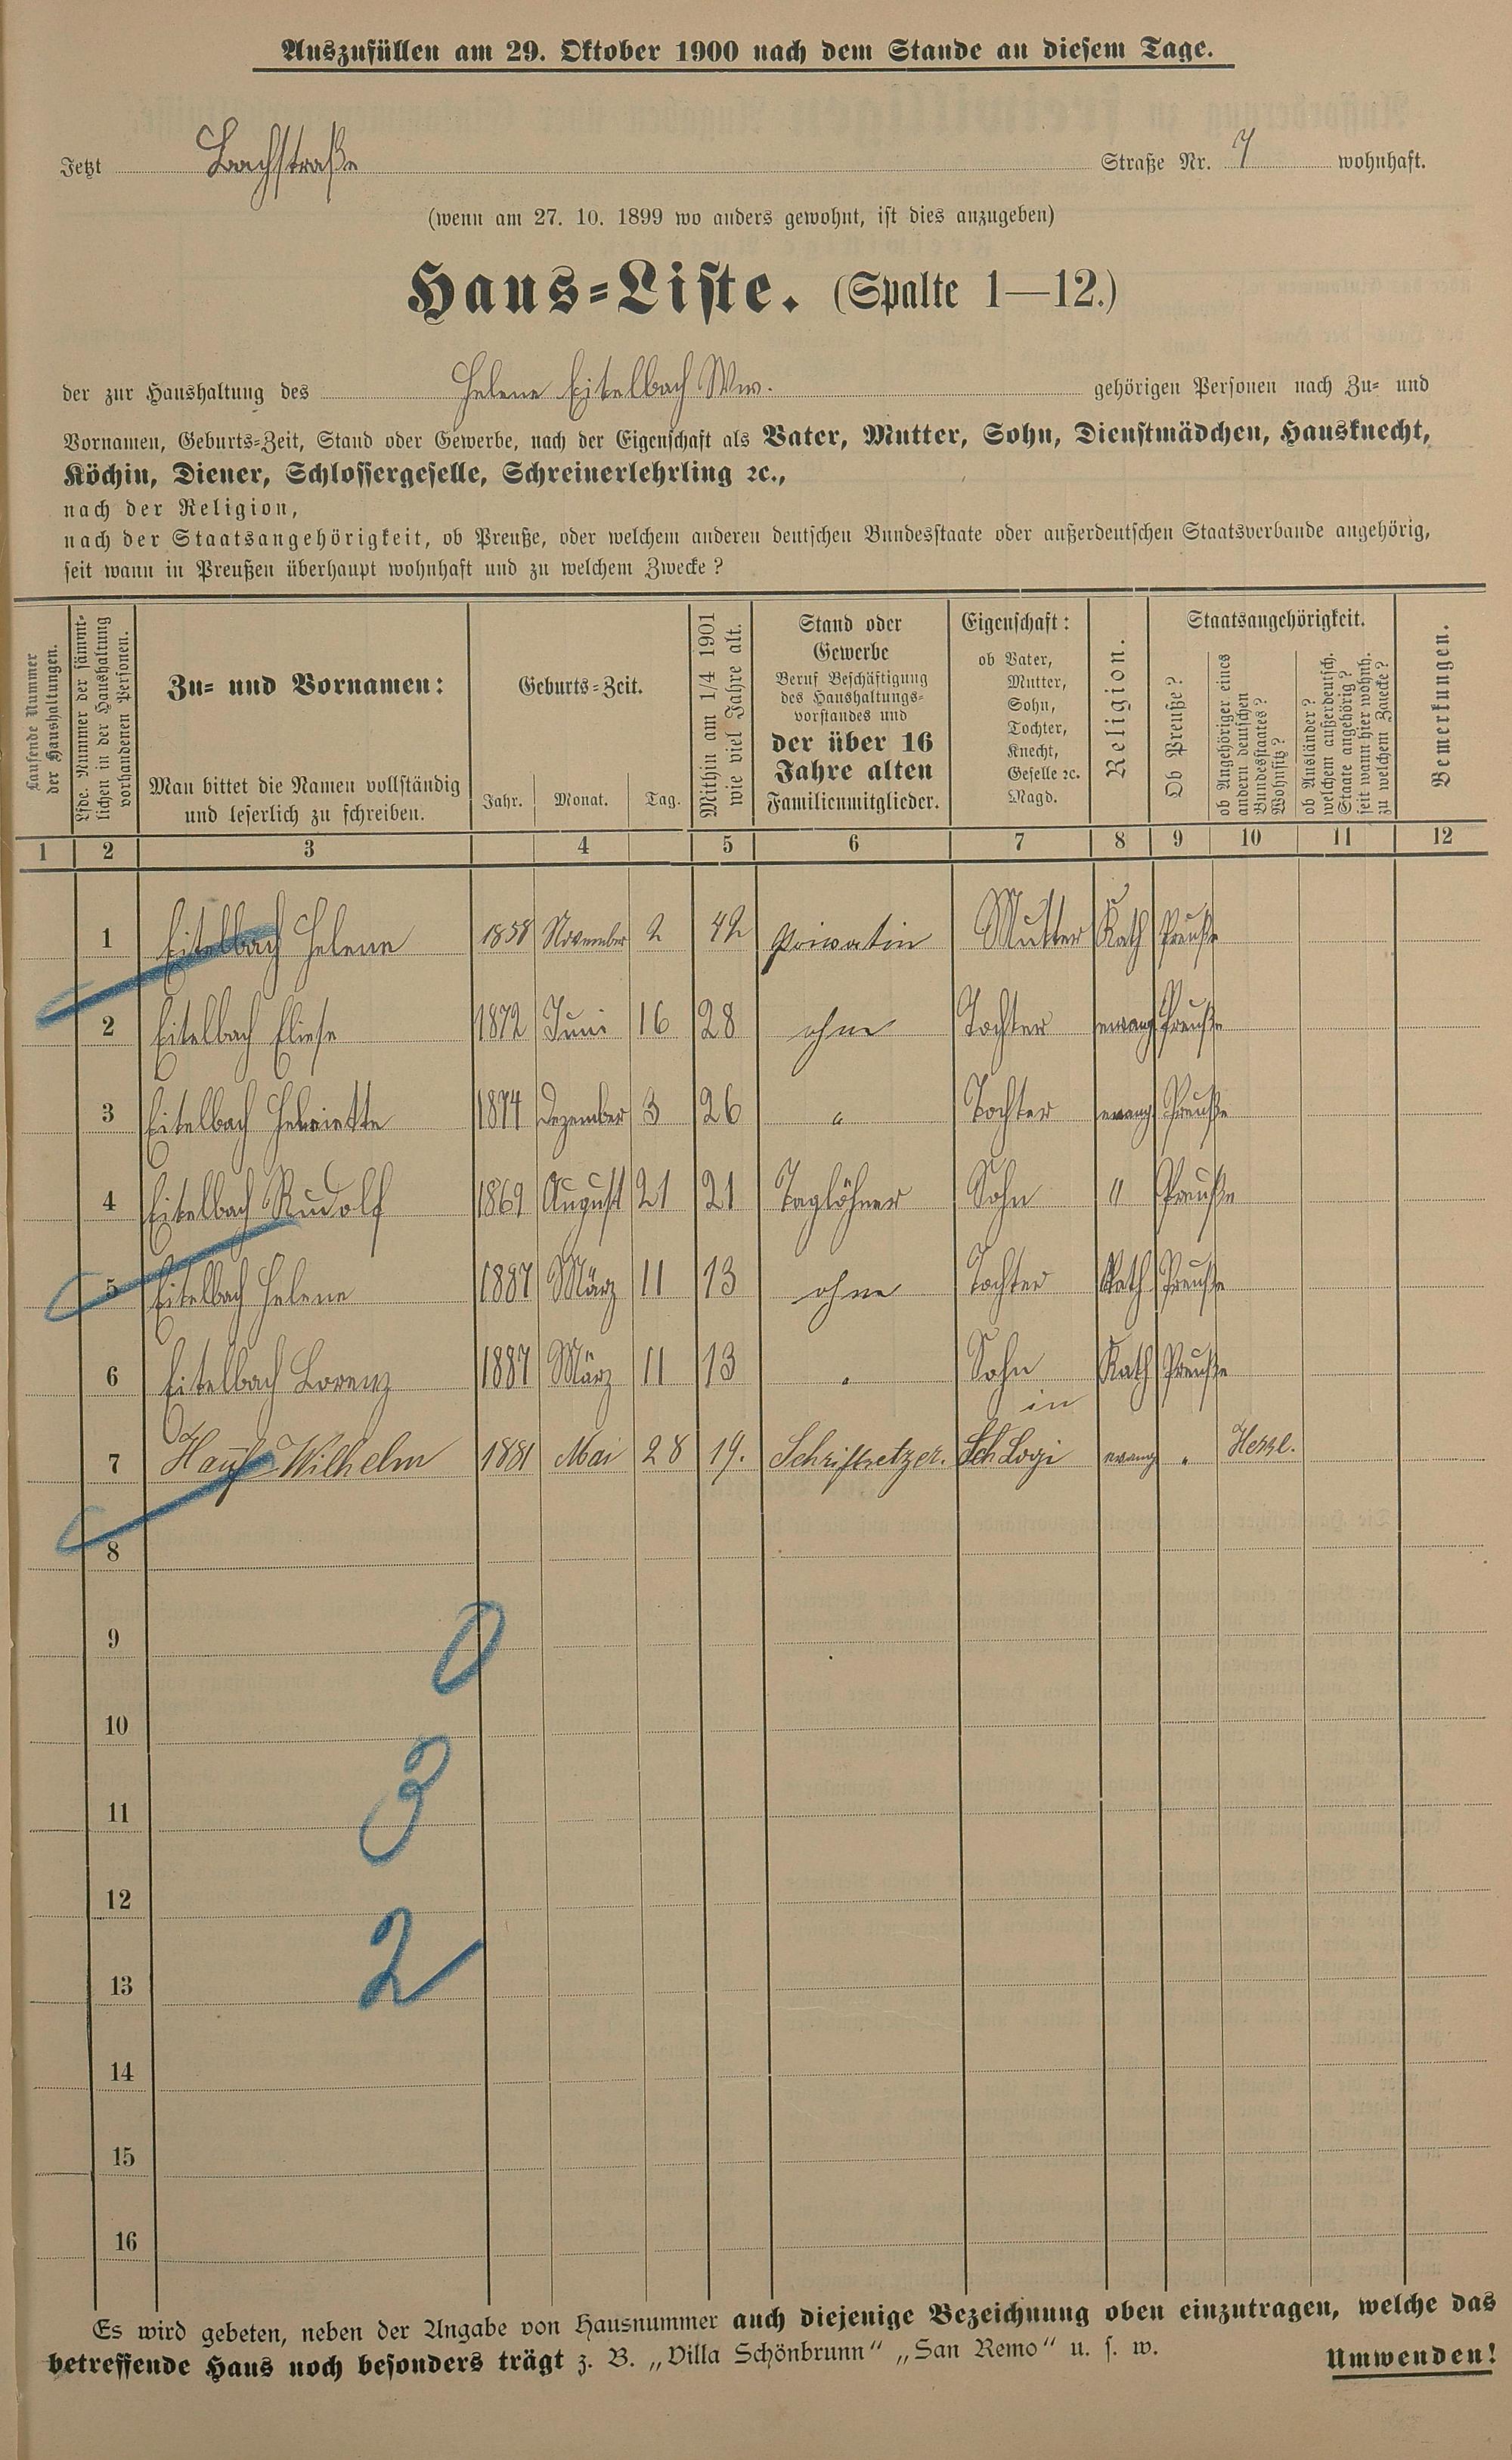 Auszufüllen am 29. Oktober 1900 nach dem Stande an diesem Tage.
Jetzt Bachstraße Straße Nr. 7 wohnhaft.
(wenn am 27. 10. 1899 wo anders gewohnt, ist dies anzugeben)
Haus-Liste. (Spalte 1—12.)
der zur Haushaltung des Helene Eitelbach Ww. gehörigen Personen nach Zu- und
Vornamen, Geburts-Zeit, Stand oder Gewerbe, nach der Eigenschaft als Vater, Mutter, Sohn, Dienstmädchen, Hausknecht,
Köchin, Diener, Schlossergeselle, Schreinerlehrling ꝛc.,
nach der Religion,
nach der Staatsangehörigkeit, ob Preuße, oder welchem anderen deutschen Bundesstaate oder außerdeutschen Staatsverbande angehörig,
seit wann in Preußen überhaupt wohnhaft und zu welchem Zwecke?
Laufende Nummer
der Haushaltungen.
Lfde. Nummer der sämmt-
lichen in der Haushaltung
vorhandenen Personen.
Zu- und Vornamen:
Man bittet die Namen vollständig
und leserlich zu schreiben.
Geburts-Zeit.
Jahr. Monat. Tag.
Mithin am 1/4 1901
wie viel Jahre alt.
Stand oder
Gewerbe
Beruf Beschäftigung
des Haushaltungs-
vorstandes und
der über 16
Jahre alten
Familienmitglieder.
Eigenschaft:
ob Vater,
Mutter,
Sohn,
Tochter,
Knecht,
Geselle ꝛc.
Magd.
Religion.
Staatsangehörigkeit.
Ob Preuße?
ob Angehöriger eines
andern deutschen
Bundesstaates?
Wohnsitz?
ob Ausländer?
welchem außerdeutsch.
Staate angehörig?
seit wann hier wohnh.
zu welchem Zwecke?
Bemerkungen.
1 2 3 4 5 6 7 8 9 10 11 12
1 Eitelbach Helene 1858 November 2 42 Privatin Mutter Kath Preuße
2 Eitelbach Eliese 1872 Juni 16 28 ohne Tochter evang Preuße
3 Eitelbach Henriette 1874 Dezember 3 26 " Tochter evang Preuße
4 Eitelbach Rudolf 1869 August 21 21 Taglöhner Sohn " Preuße
5 Eitelbach Helene 1887 März 11 13 ohne Tochter Kath Preuße
6 Eitelbach Lorenz 1887 März 11 13 " Sohn Kath Preuße
in
7 Wilhelm 1881 Mai 28 19. Schriftsetzer. Logi evang "
8
9
0
10
11
3
12
13
2
14
15
16
Es wird gebeten, neben der Angabe von Hausnummer auch diejenige Bezeichnung oben einzutragen, welche das
betreffende Haus noch besonders trägt z. B. „Villa Schönbrunn“ „San Remo“ u. s. w. Umwenden!